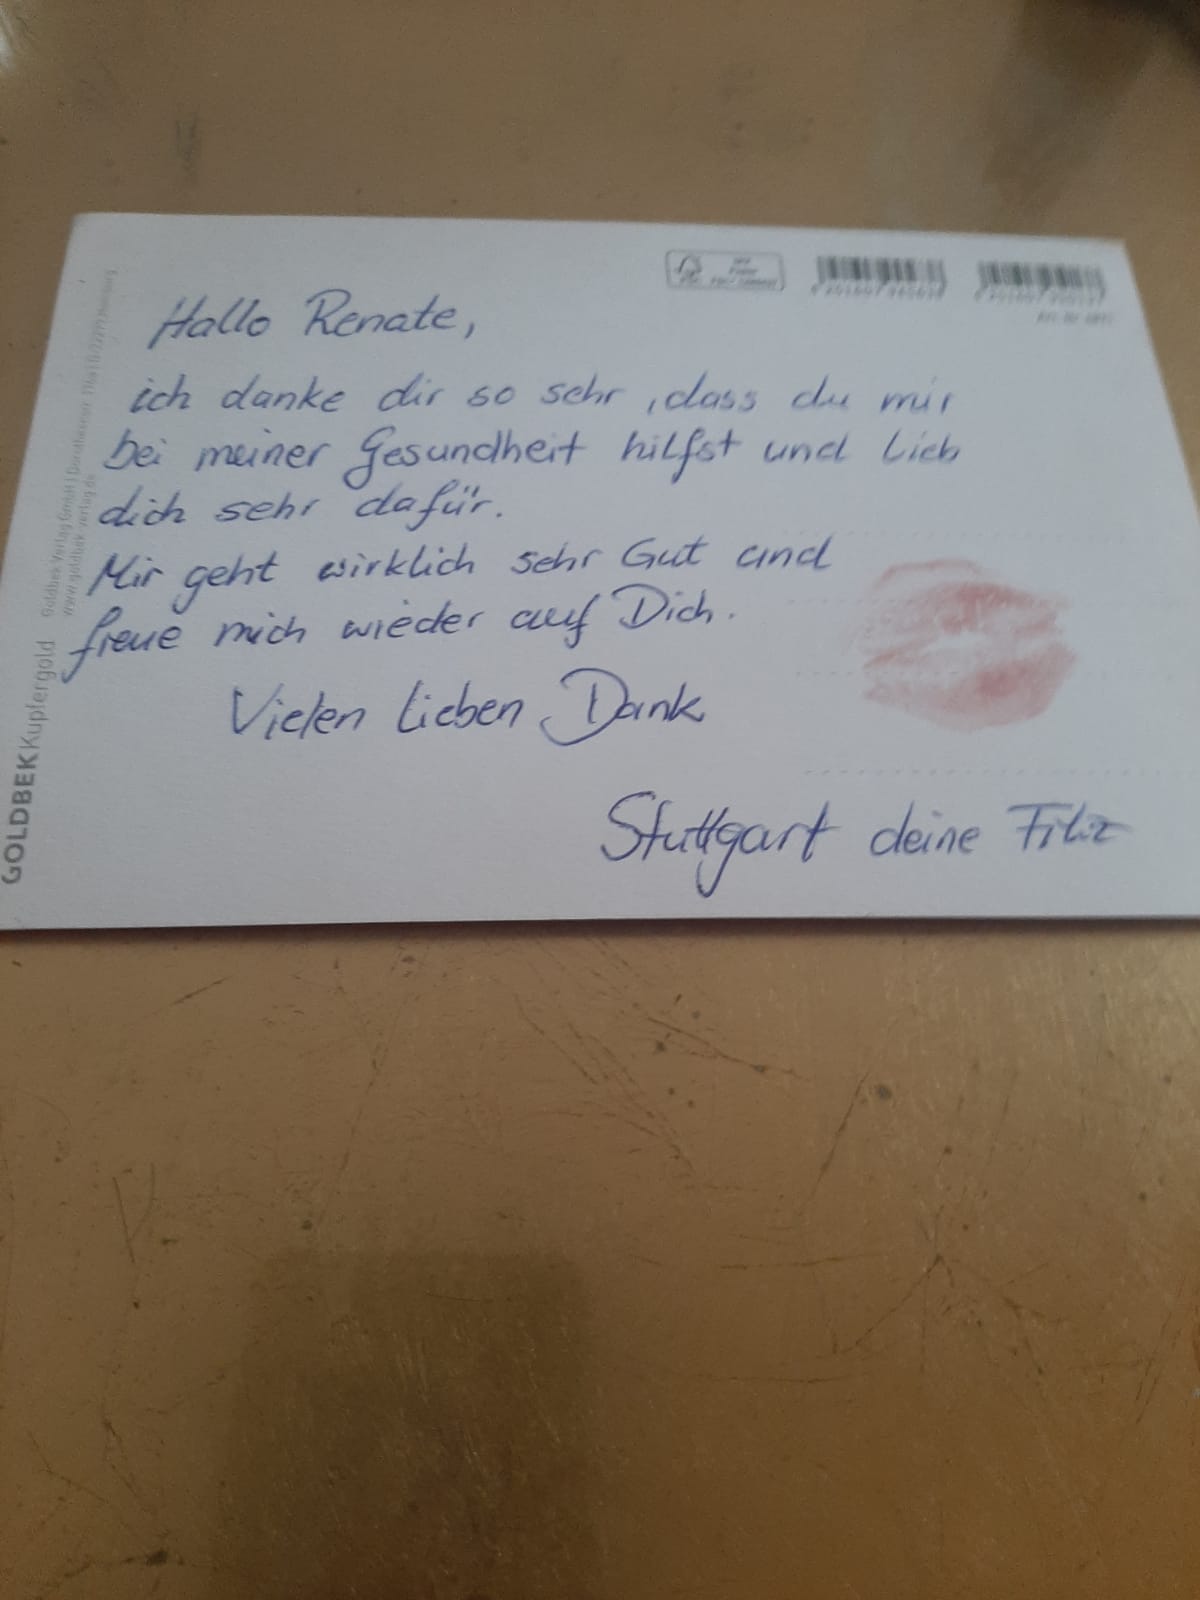 Hallo Renate,
ich danke dir so sehr, dass du mir
bei meiner Gesundheit hilfst und lieb
dich sehr dafür.
Mir geht wirklich sehr Gut und
freue mich wieder auf Dich.
Vielen lieben Dank
Stuttgart deine Filiz
GOLDBEK Kupfergold
Goldbek Verlag GmbH
www.goldbek-verlag.de